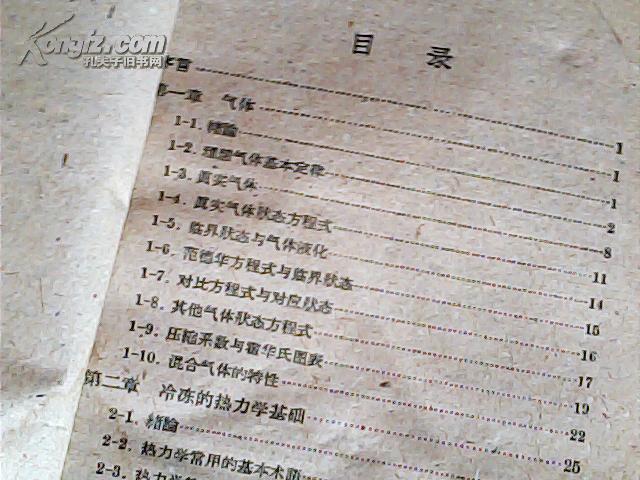 Kongfz.com
孔夫子旧书网
目 录
言 1
第一章 气体 1
1-1. 緒論 1
1-2. 理想气体基本定律 2
1-3. 眞实气体 8
1-4. 眞实气体状态方程式 11
1-5. 临界状态与气体液化 14
1-6. 范德华方程式与临界状态 15
1-7. 对比方程式与对应状态 16
1-8. 其他气体状态方程式 17
1-9. 压縮系数与霍华氏图表 19
1-10. 混合气体的特性 22
第二章 冷冻的热力学基础 25
2-1. 緒論
2-2. 热力学常用的基本术語
2-3. 热力学